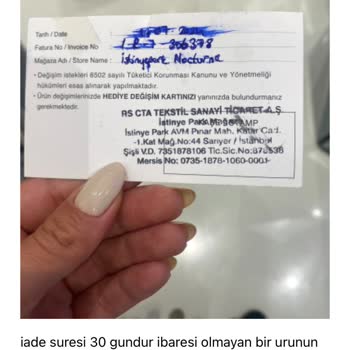 Tarih / Date
Fatura No / Invoice No 306378
Mağaza Adı / Store Name : istinyepark Nocturne
• Değişim istekleri 6502 sayılı Tüketici Korunması Kanunu ve Yönetmeliği
hükümleri esas alınarak yapılmaktadır.
• Ürün değişimlerinizde HEDİYE DEĞİŞİM KARTINIZI yanınızda bulundurmanız
gerekmektedir.
RS CTA TEKSTİL SANAYİ TİCARET A.Ş.
İstinye Park
İstinye Park AVM Pınar Mah. Katar Cad.
-1.Kat Mağ.No:44 Sarıyer / İstanbul
Şişli V.D. 7351878106 Tic.Sic.No:
Mersis No: 0735-1878-1060-0001
iade suresi 30 gundur ibaresi olmayan bir urunun